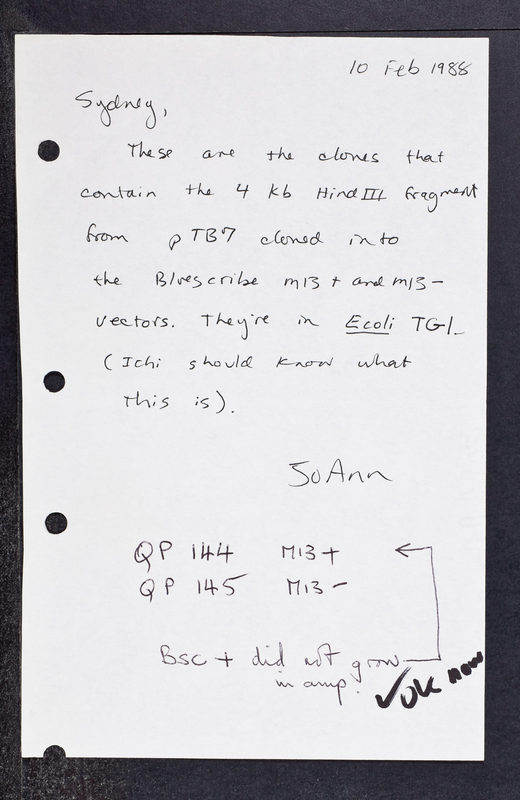 10 Feb 1988
Sydney,
These are the clones that
contain the 4 kb Hind III fragment
from pTB7 cloned into
the Bluescribe m13 + and m13 -
vectors. They're in Ecoli TG1
(Ichi should know what
this is).
JoAnn
QP 144 M13+
QP 145 M13-
Bsc + did not grow
in amp. ✓OK now